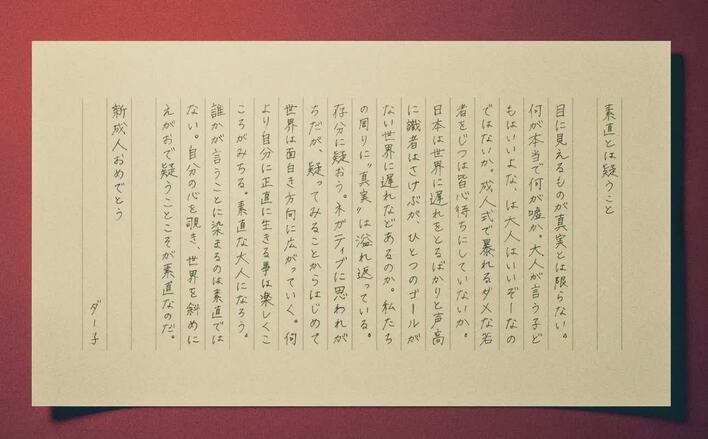 素直とは疑うこと
目に見えるものが真実とは限らない。
何が本当で何が嘘か。大人が言う子ど
もはいいよな、は大人はいいぞーなの
ではないか。成人式で暴れるダメな若
者をじつは皆心待ちにしていないか。
日本は世界に遅れをとるばかりと声高
に識者はさけぶが、ひとつのゴールが
ない世界に遅れなどあるのか。私たち
の周りに〝真実〟は溢れ返っている。
存分に疑おう。ネガティブに思われが
ちだが、疑ってみることからはじめて
世界は面白き方向に広がっていく。何
より自分に正直に生きる事は楽しくこ
ころがみちる。素直な大人になろう。
誰かが言うことに染まるのは素直では
ない。自分の心を覗き、世界を斜めに
えがおで疑うことこそが素直なのだ。
新成人おめでとう
ダー子